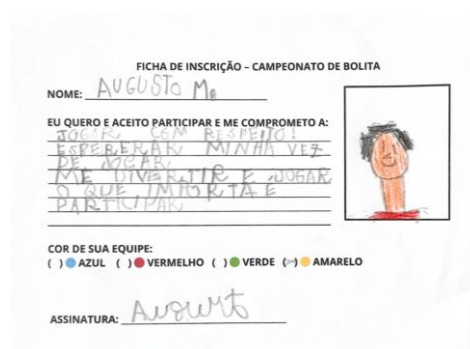 FICHA DE INSCRIÇÃO – CAMPEONATO DE BOLITA
NOME: AUGUSTO M
EU QUERO E ACEITO PARTICIPAR E ME COMPROMETO A:
JOGAR COM RESPEITO!
ESPERERAR MINHA VEZ
DE JOGAR
ME DIVERTIR E JOGAR
O QUE IMPORTA É
PARTICIPAR
COR DE SUA EQUIPE:
( ) AZUL ( ) VERMELHO ( ) VERDE (x) AMARELO
ASSINATURA: Augusto